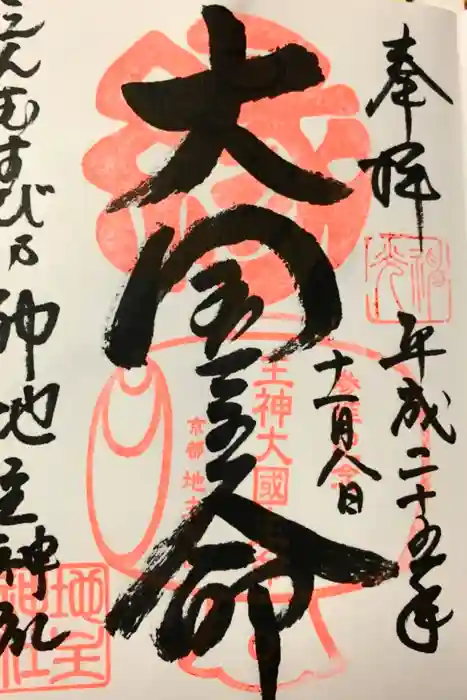 奉拝
平成二十五年
十一月八日
大国主命
えんむすび乃神地主神社
主神大國
京都地主
地主神社